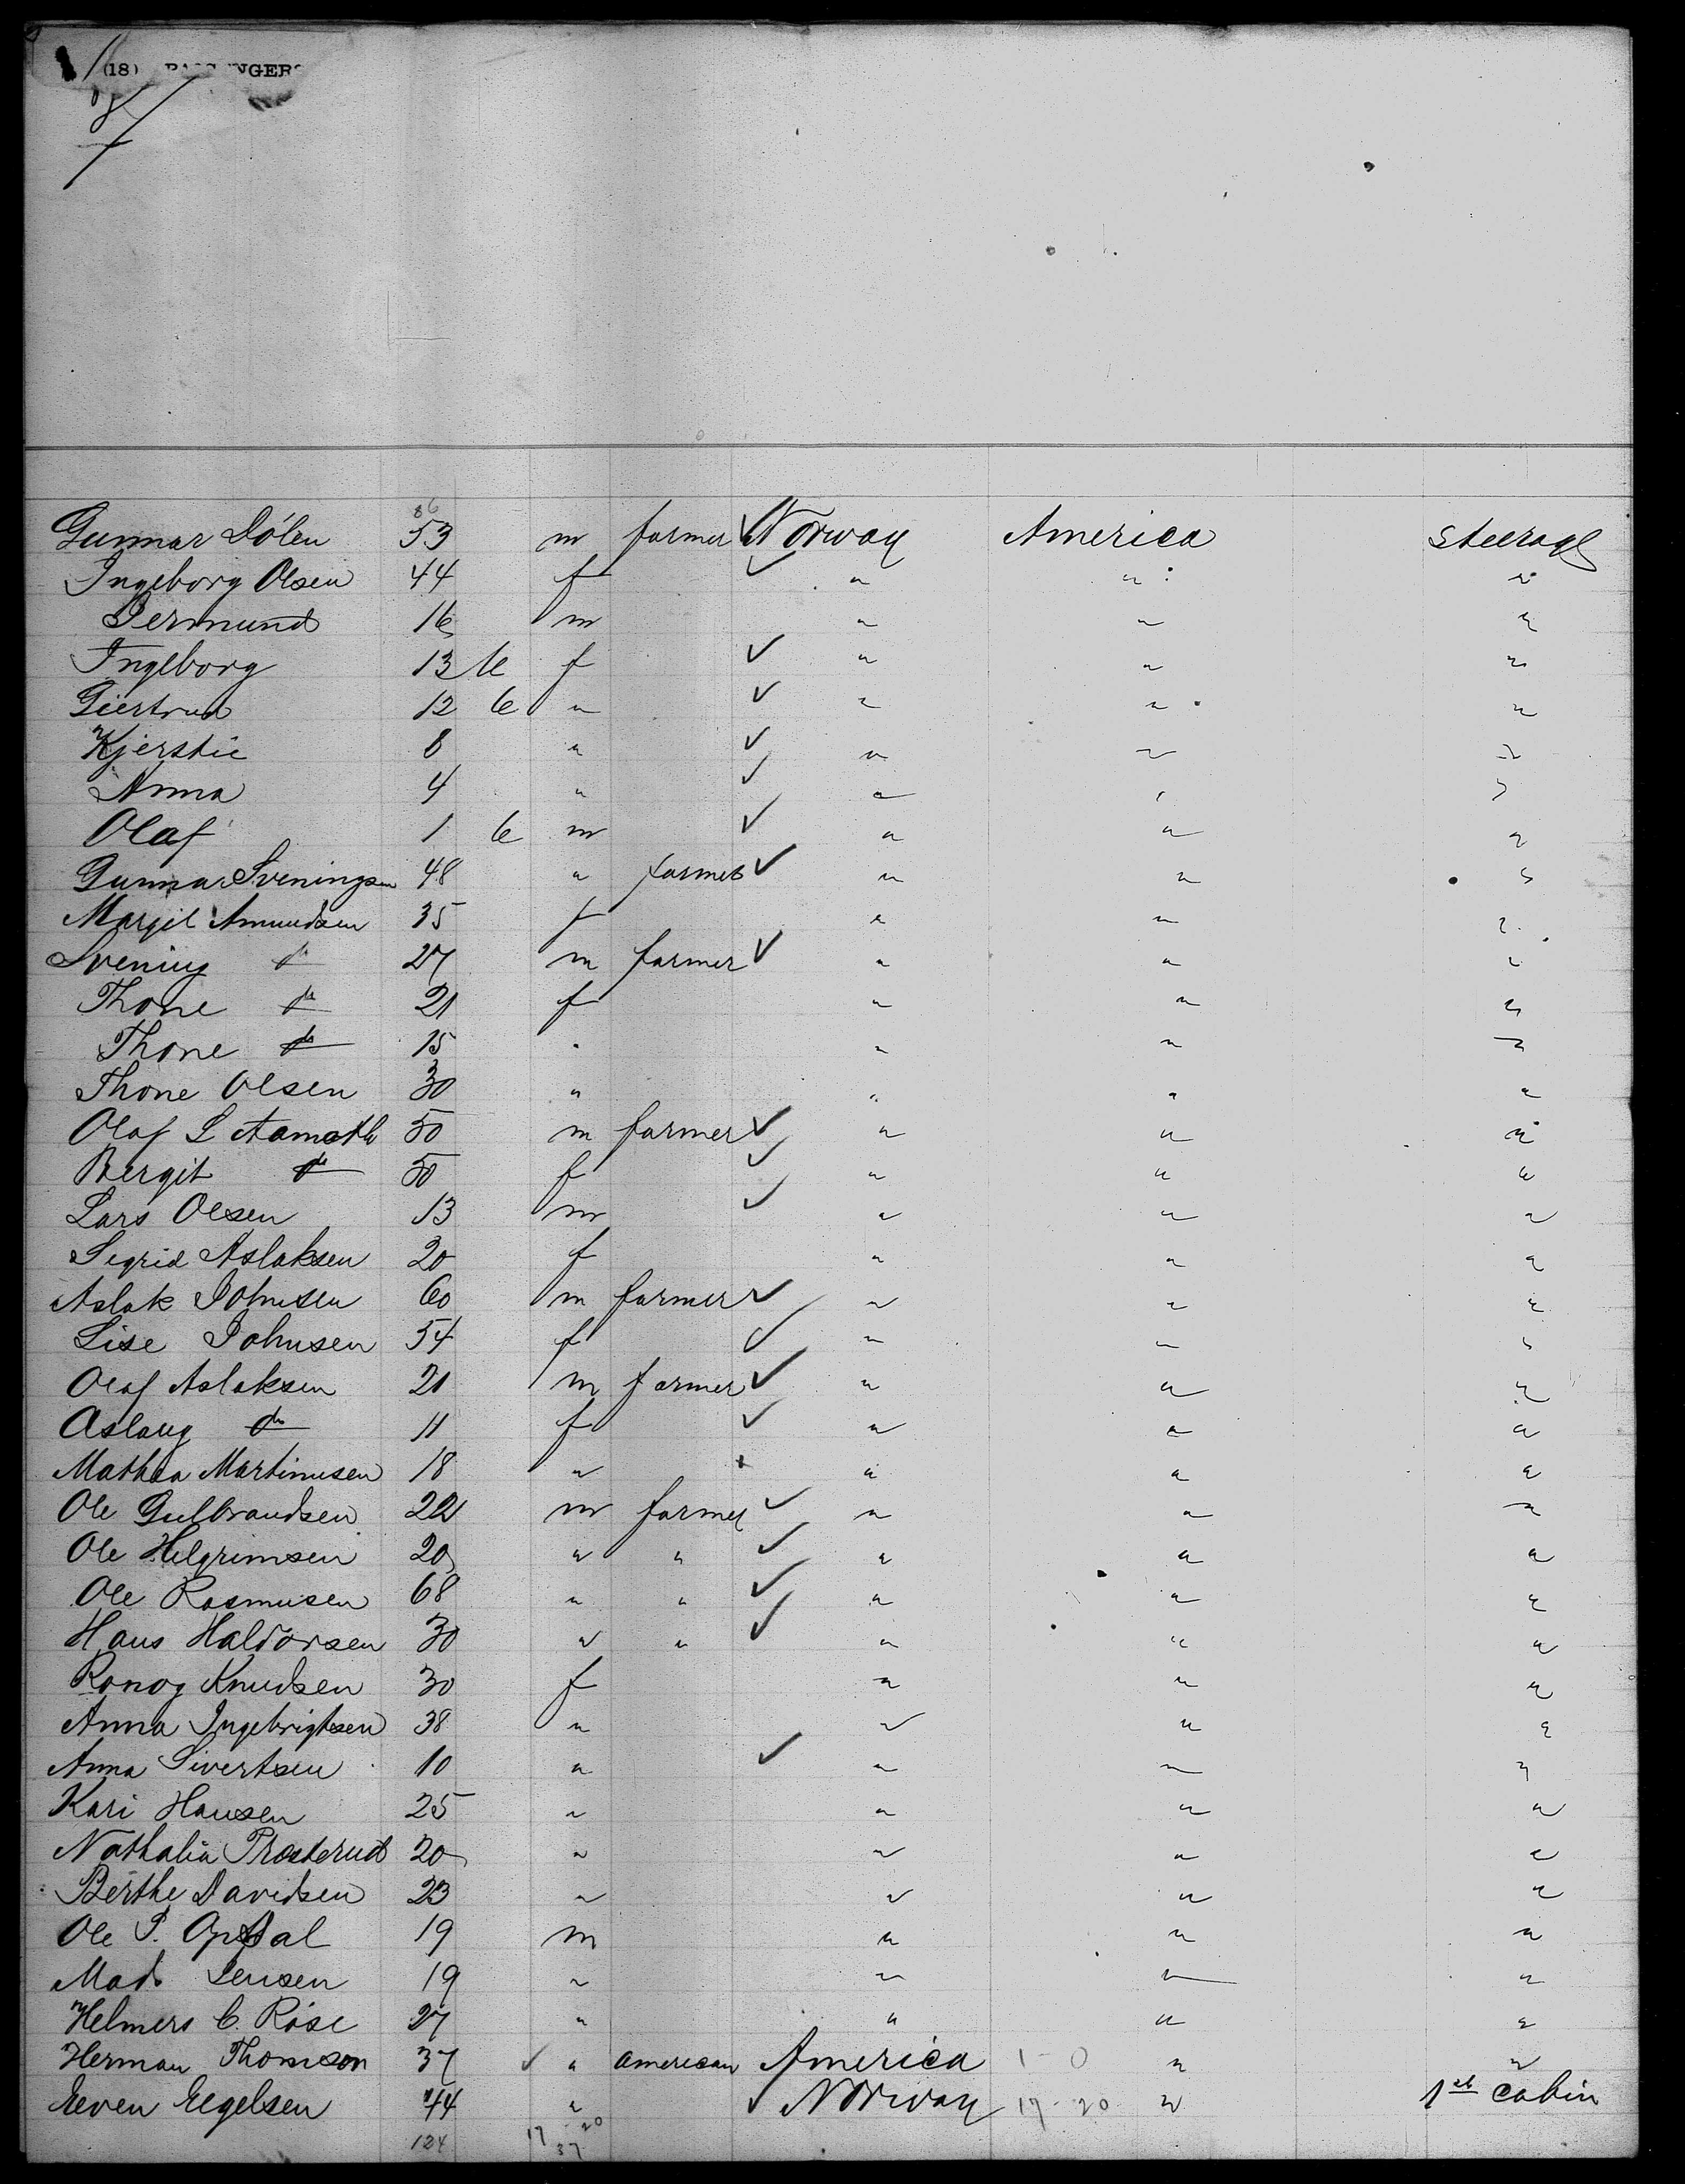 (18)
86
Gunnar Dólen 53 m farmer ✓ Norway America Steerage
Ingeborg Olsen 44 f ✓ " " "
Germund 16 m " " "
Ingeborg 13 6 f ✓ " " "
Giertrud 12 6 " ✓ " " "
Kjerstie 8 " ✓ " " "
Anna 4 " ✓ " " "
Olaf 1 6 m ✓ " " "
Gunnar Sveningsen 48 " farmer ✓ " " "
Margit Amundsen 35 f " " "
Svening do 27 m farmer ✓ " " "
Thone do 21 f " " "
Thone do 15 " " " "
Thone Olsen 30 " " " "
Olaf L Aamoth 50 m farmer ✓ " " "
Bergit do 50 f ✓ " " "
Lars Olsen 13 m ✓ " " "
Sigrid Aslaksen 20 f " " "
Aslak Johnsen 60 m farmer ✓ " " "
Lise Johnsen 54 f ✓ " " "
Olaf Aslaksen 21 m farmer ✓ " " "
Aslaug do 11 f ✓ " " "
Mathea Martinusen 18 " " " "
Ole Gulbrandsen 22 m farmer ✓ " " "
Ole Helgrimsen 20 " " ✓ " " "
Ole Rasmusen 68 " " ✓ " " "
Hans Haldorsen 30 " " ✓ " " "
Ronog Knudsen 30 f " " "
Anna Ingebrigtsen 38 " " " "
Anna Sivertsen 10 " ✓ " " "
Kari Hansen 25 " " " "
Nathalia Prosterud 20 " " " "
Berthe Davidsen 23 " " " "
Ole P. Opdal 19 m " " "
Mads Jensen 19 " " " "
Helmers C. Róse 27 " " " "
Herman Thomson 37 ✓ " american America 1-0 " "
Eeven Eegelsen 44 " ✓ Norway 17-20 " 1st cabin
124 17 20
37